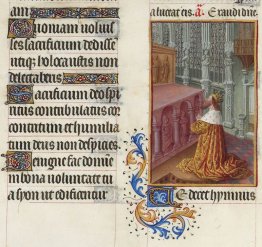 Quoniam voluiſ
ſes ſacrificium dediſſem
utique holocauſtis non
delectaberis
Sacrificium deo ſpi
ritus contribulatus cor
contritum et humilia
tum deus non deſpicies
Benigne fac domine
in bona voluntate tua
ſyon ut edificent
a luctatus. a. Exaudi dne.
Te decet hymnus